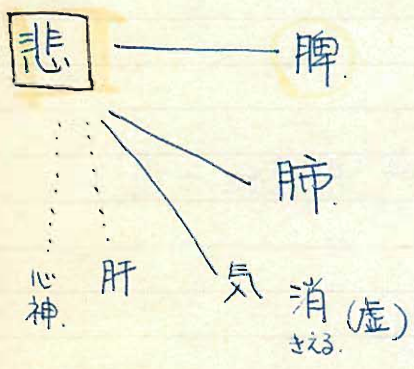 悲 脾.
肺.
心神. 肝 気 消(虚)
きえる.